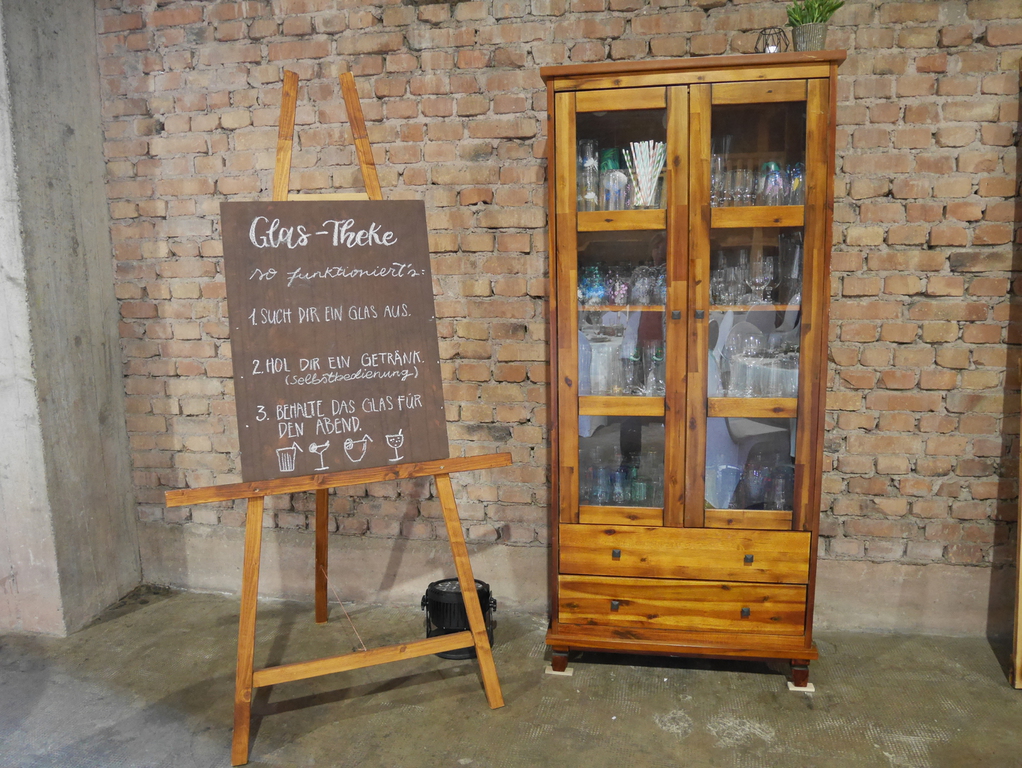 Glas-Theke
so funktioniert's:
1. SUCH DIR EIN GLAS AUS.
2. HOL DIR EIN GETRÄNK.
(Selbstbedienung)
3. BEHALTE DAS GLAS FÜR
DEN ABEND.